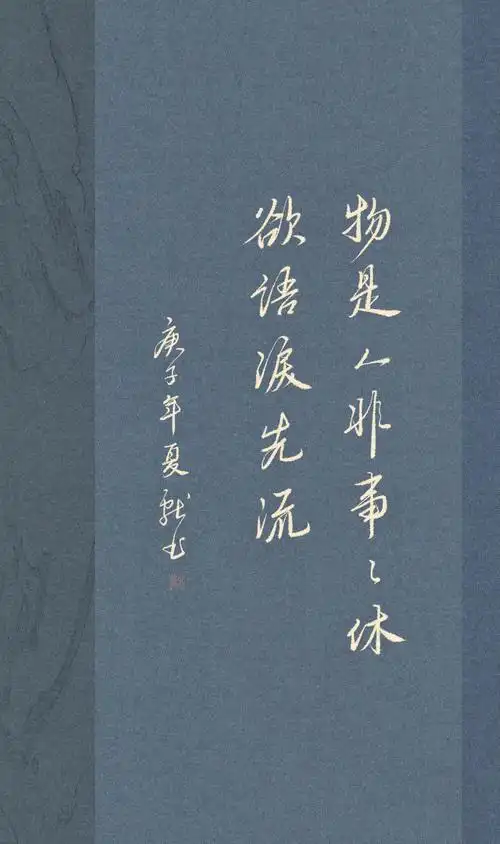 物是人非事〻休
欲語淚先流
庚子年夏